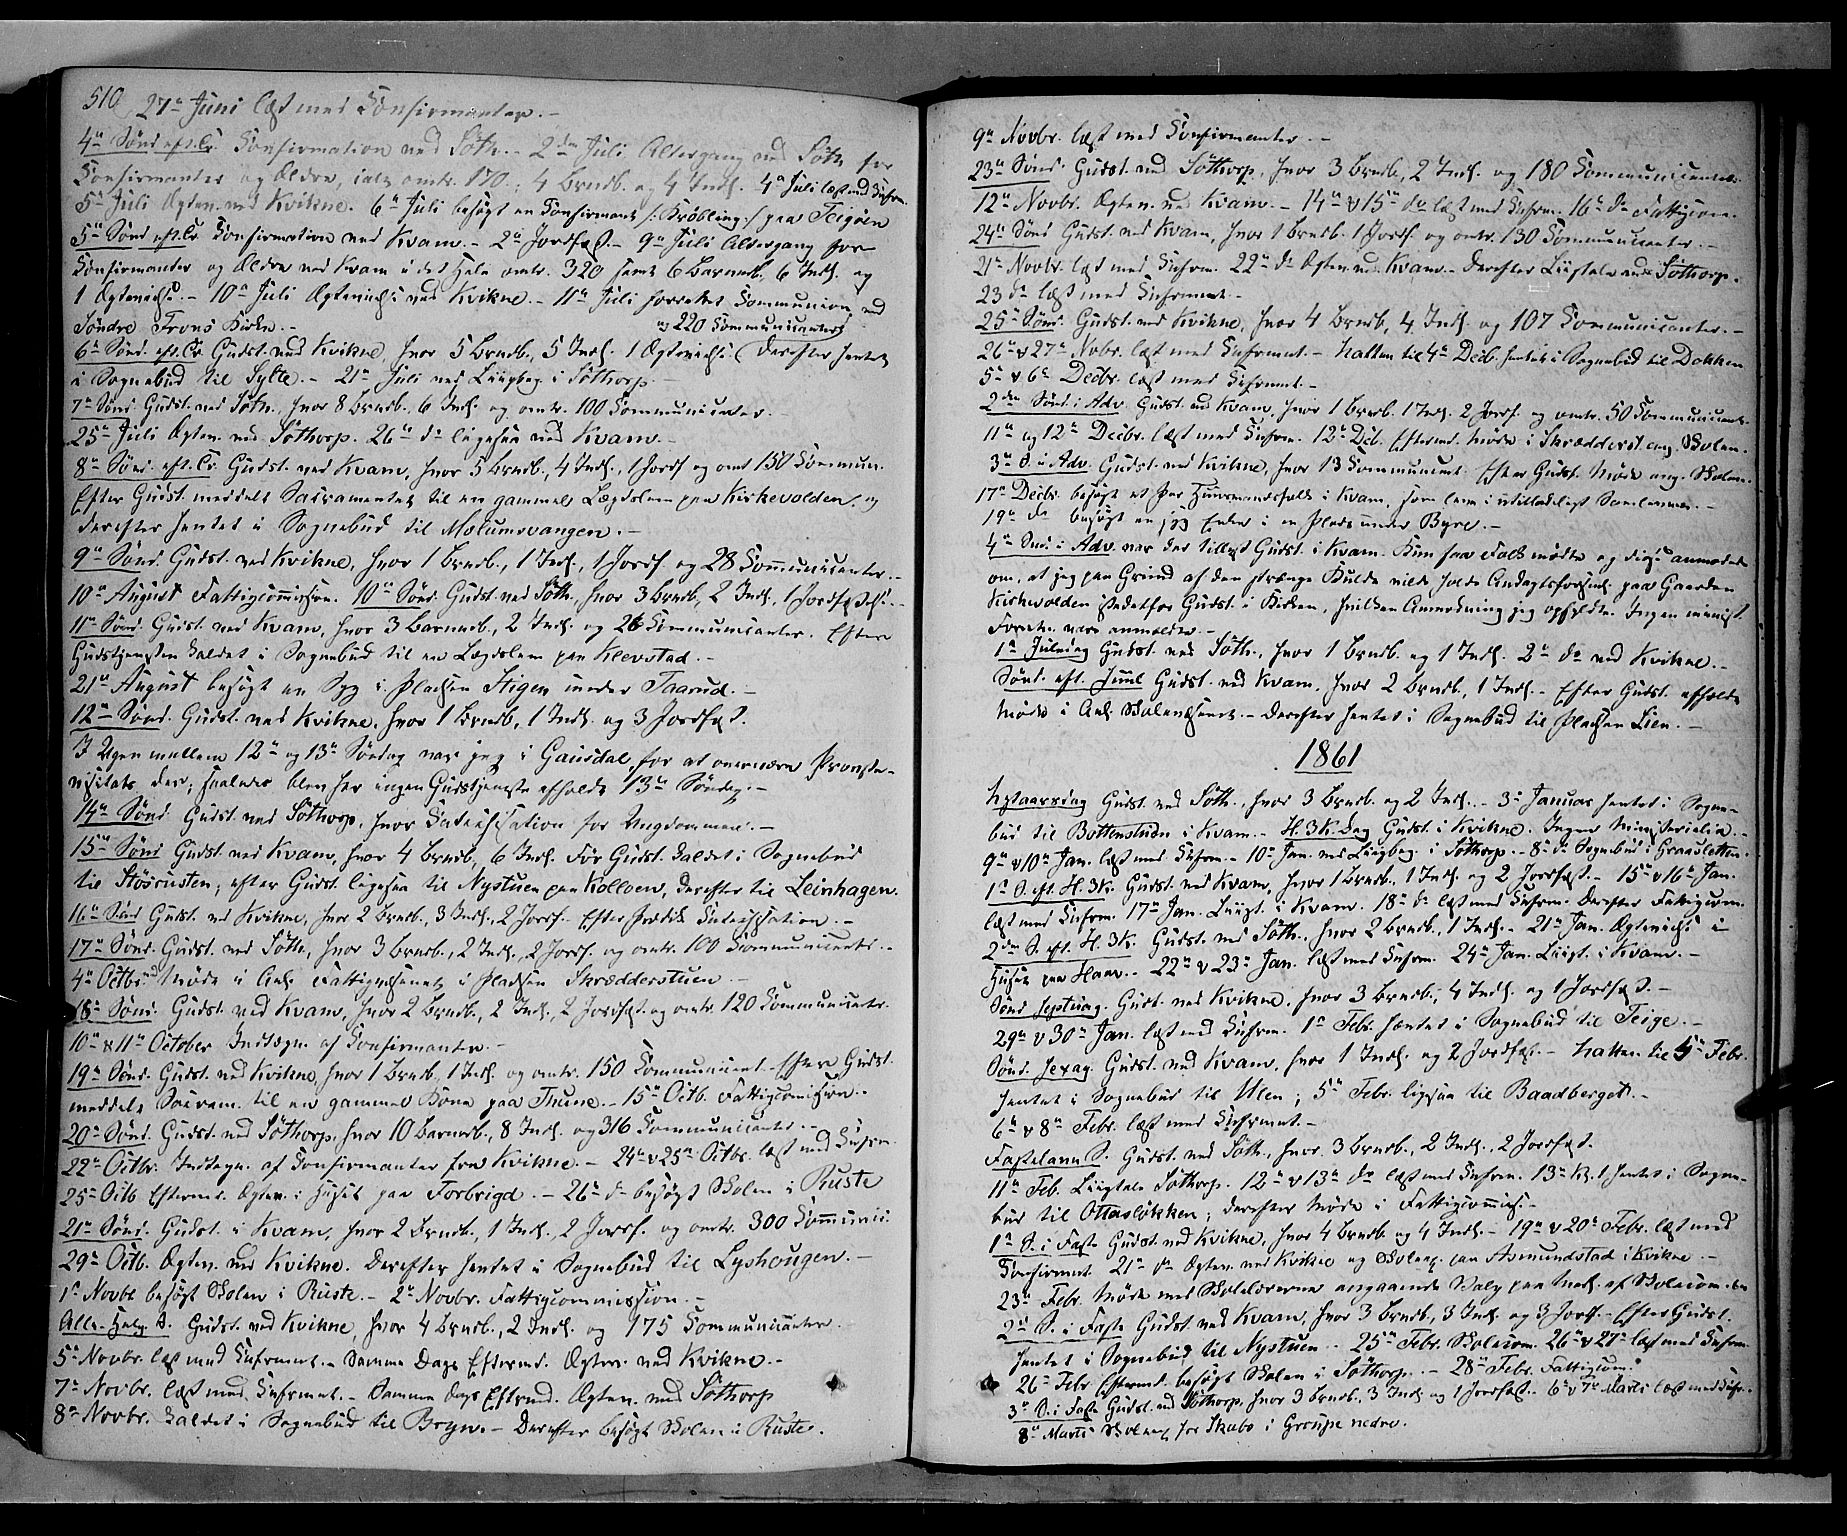 510 27de Juni læst med Confirmanter.-
4de Sønd. eft. Tr. Confirmation ved Søth.- 2den Juli Altergang ved Søth. for
Confirmanter og Ældre, ialt omtr. 170.; 4 Brndb. og 4 Indl. 4de Juli læst med Cnfrm.
5te Juli Ægtev. ved Kvikne. 6te Juli besøgt en Confirmant /: Krøbling :/ paa Teigøen
5te Sønd. eft. Tr. Confirmation ved Kvam.- 2de Jordfæst.- 9de Juli Altergang for
Confirmanter og Ældre ved Kvam i det Hele omtr. 320 samt 6 Barneb., 6 Indl. og
1 Ægtevielse.- 10de Juli Ægtevielse ved Kvikne.- 11te Juli forrettet Communion ved
Søndre Frons Kirke.- og 220 Communicanter
6te Sønd. eft. Tr. Gudst. ved Kvikne, hvor 5 Brndb., 5 Indl. 1 Ægtevielse (derefter hentet
i Sognebud til Sylte.- 21de Juli ved Liigbeg. i Søthorp.-
7de Sønd. Gudst. ved Søth., hvor 8 Brndb., 6 Indl. og omtr. 100 Communicanter.
25de Juli Ægtev. ved Søthorp. 26de do ligesaa ved Kvam.-
8de Sønd. eft. Tr. Gudst. ved Kvam, hvor 5 Brndb., 4 Indl., 1 Jordf. og omt 150 Commun.
Efter Gudst. meddelt Sacramentet til en gammel Lægdslem paa Kirkevolden og
derefter hentet i Sognebud til Molumsvangen.-
9de Sønd. Gudst. ved Kvikne, hvor 1 Brndb., 1 Indl., 1 Jordf. og 28 Communicanter.-
10de August Fattigcommission. 10de Sønd. Gudst. ved Søth., hvor 3 Brndb., 2 Indl., 1 Jordfæstelse.-
11te Sønd. Gudst. ved Kvam, hvor 3 Barneb., 2 Indl. og 26 Communicanter. Efter
Gudstjenesten kaldet i Sognebud til en Lægdslem paa Klevstad.-
21de August besøgt en Syg i Pladsen Stigen under Taarud.-
12te Sønd. Gudst. ved Kvikne, hvor 1 Brndb., 1 Indl. og 3 Jordfæst.
I Ugen mellem 12te og 13de Søndag var jeg i Gausdal, for at overvære Provste-
visitats der; saaledes blev her ingen Gudstjeneste afholdt 13de Søndag.-
14de Sønd. Gudst. ved Søthorp, hvor Catechisation for Ungdommen.-
15de Sønd. Gudst. ved Kvam, hvor 4 Brndb., 6 Indl. Før Gudst. kaldet i Sognebud
til Størusten; efter Gudst. ligesaa til Nystuen paa Kolloen, derefter til Leirhagen.
16de Sønd. Gudst. ved Kvikne, hvor 2 Brndb., 3 Indl., 2 Jordf. Efter Prædik. Catechisation.-
17de Sønd. Gudst. ved Søth., hvor 3 Brndb., 2 Indl., 2 Jordf. og omtr. 100 Communicanter.-
4de Octbr. Møde i Anl. Fattigvæsenet i Pladsen Skrædderstuen.-
18de Sønd. Gudst. ved Kvam, hvor 2 Brndb., 2 Indl., 2 Jordfæst. og omtr. 120 Communicanter.
10de & 11te October Indtegn. af Confirmanter.-
19de Sønd. Gudst. ved Kvikne, hvor 1 Brndb., 1 Indl. og omtr. 150 Communicant. Efter Gudst.
meddelt Sacram. til en gammel Kone paa Thune.- 15de Octb. Fattigcommission.-
20de Sønd. Gudst. ved Søthorp, hvor 10 Barneb., 8 Indl. og 316 Communicanter.-
22de Octbr. Indtegn. af Confirmanter fra Kvikne.- 24de & 25de Octbr. læst med Cnfrm.
25de Octb. Efterm. Ægtev. i Huset paa Forbrigd.- 26de do besøgt Skolen i Ruste
21de Sønd. Gudst. i Kvam, hvor 2 Brndb., 1 Indl., 2 Jordf. og omtr. 300 Communic.
29de Octb. Ægtev. ved Kvikne. Derefter hentet i Sognebud til Lyshougen.-
1ste Novbr besøgt Skolen i Ruste.- 2de Novbr. Fattigcommission.-
Alle-Helg. D. Gudst. ved Kvikne, hvor 4 Brndb., 2 Indl. og 175 Communicanter.
5te Novbr. læst med Cnfrmnt.- Samme Dags Efterm. Ægtev. ved Kvikne.-
7de Novbr. læst med Cnfrmnt.- Samme Dags Efterm. Ægtev. ved Søthorp
8de Novbr. kaldet i Sognebud til Bryn.- Derefter besøgt Skolen i Ruste.
9de Novbr. læst med Confirmanter.-
23de Sønd. Gudst. ved Søthorp, hvor 3 Brndb., 2 Indl. og 180 Communicanter.
12te Novbr. Ægtev. ved Kvam.- 14de & 15de do læst med Cnfrm. 16de do Fattigcom.
24de Sønd. Gudst. ved Kvam, hvor 1 Brndb. 1 Jordf. og omtr. 130 Communicanter.-
21de Novbr. læst med Cnfrm. 22de do Ægtev. ved Kvam.- Derefter Liigtale ved Søthorp.
23 do læst med Cnfrmnt.-
25de Sønd. Gudst. ved Kvikne, hvor 4 Brndb., 4 Indl. og 107 Communicanter.-
26de & 27de Novbr. læst med Cnfrmnt.- Natten til 4de Decb. hentet i Sognebud til Dokken
5te & 6te Decbr. læst med Cnfrmnt.-
2den Sønd. i Adv. Gudst. ved Kvam, hvor 1 Brndb. 1 Indl. 2 Jordf. og omtr. 50 Communicant.
11te og 12te Decbr. læst med Cnfrm. 12te Dec. Efterm. Møde i Skrædderst. ang. Skolen.
3de S. i Adv. Gudst. ved Kvikne, hvor 13 Communicant. Efter Gudst. Møde ang. Skolen.
17de Decbr. besøgt et Par Huusmandsfolk i Kvam, som leve i utilladeligt Samlevnet.-
19de do besøgt en syg Enke i en Plads under Byre.-
4de Snd. i Adv. var der tillyst Gudst. i Kvam. Kun faa Folk mødte og disse anmodede
om, at jeg paa Grund af den strænge Kulde vilde holde Andagtsforsml. paa Gaarden
Kirkevolden istedetfor Gudst. i Kirken, hvilken Anmodning jeg opfyldte. Ingen minist.
Forretn. vare anmeldte.-
1ste Juledag Gudst. ved Søth., hvor 1 Brndb. og 1 Indl. 2de do ved Kvikne.-
Sønd. eft. Juul Gudst. ved Kvam, hvor 2 Brndb., 1 Indl.- Efter Gudst. afholdt
Møde i Anl. Skolevæsenet.- Derefter hentet i Sognebud til Pladsen Lien.-
1861
Nytaarsdag Gudst. ved Søth., hvor 3 Brndb. og 2 Indl.- 3de Januar hentet i Sogne-
bud til Bottenstuen i Kvam.- H. 3K. Dag Gudst. i Kvikne. Ingen Ministerialia.-
9de & 10de Jan. læst med Cnfrm.- 10de Jan. ved Liigbeg. i Søthorp.- 8de do Sognebud i Graasletten.
1ste S. eft. H. 3K. Gudst. ved Kvam, hvor 1 Brndb., 1 Indl. og 2 Jordfæst.- 15de & 16de Jan.
læst med Cnfrm. 17de Jan. Liigt. i Kvam. 18de do læst med Cnfrm. Derefter Fattigcom.
2den S. eft. H. 3K. Gudst. ved Søth., hvor 2 Brndb., 1 Indl.- 21de Jan. Ægtevielse i
Huset paa Haav.- 22de & 23de Jan. læst med Cnfrm. 24de Jan. Liigt. i Kvam.-
Sønd. Septuag. Gudst. ved Kvikne, hvor 3 Brndb., 4 Indl. og 1 Jordfæst.-
29de & 30te Jan. læst med Cnfrm. 1ste Febr. hentet i Sognebud til Teige.-
Sønd. Sexag. Gudst. ved Kvam, hvor 1 Indl. og 2 Jordfæst.- Natten til 5te Febr.
hentet i Sognebud til Ulen; 5te Febr. ligesaa til Baadberget.-
6te & 8de Febr. læst med Cnfrmnt.-
Fastelavns S. Gudst. ved Søth., hvor 3 Brndb., 2 Indl., 2 Jordfæst.
11te Feb. Liigtale Søthorp. 12te & 13de do læst med Cnfrm. 13de hentet i Sogne-
bud til Ottasløkken; derefter Møde i Fattigcommiss.-
1ste S. i Faste Gudst. ved Kvikne, hvor 4 Brndb. og 4 Indl.- 19de & 20de Febr. læst med
Confirmant. 21de do Ægtev. ved Kvikne og paa Asmundstad i Kvikne.-
23de Febr. Møde med Skolelærerne angaaende Valg paa Medl. af Skolecom.
2den S. i Faste Gudst. ved Kvam, hvor 3 Brndb., 3 Indl. og 3 Jordf.- Efter Gudst.
hentet i Sognebud til Nystuen.- 25de Febr. Skolecom. 26de & 27de læst med Cnfrm.
26de Febr. Efterm. besøgt Skolen i Søthorp.- 28de Febr. Fattigcom.
3de S. i Faste Gudst. ved Søthorp, hvor 3 Brndb., 3 Indl. og 1 Jordfæst.- 6te & 7de Marts læst med Cnfr.
8de Marts for Skabo i Graupe nedre.